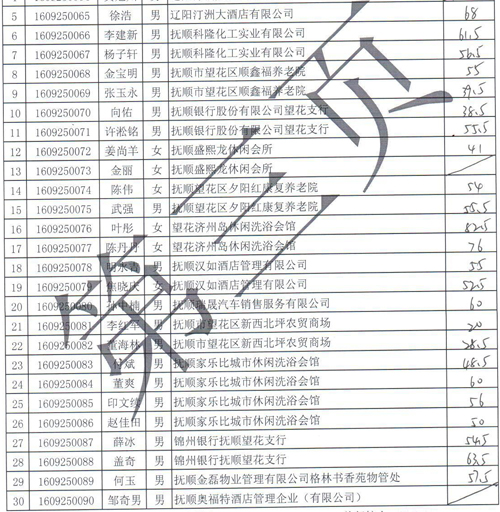 5 1609250065 徐浩 男 辽阳汀洲大酒店有限公司 68
6 1609250066 李建新 男 抚顺科隆化工实业有限公司 61.5
7 1609250067 杨子轩 男 抚顺科隆化工实业有限公司 56.5
8 1609250068 金宝明 男 抚顺市望花区顺鑫福养老院 55
9 1609250069 张玉永 男 抚顺市望花区顺鑫福养老院
10 1609250070 向佑 男 抚顺银行股份有限公司望花支行 38.5
11 1609250071 许淞铭 男 抚顺银行股份有限公司望花支行 55.5
12 1609250072 姜尚羊 女 抚顺盛熙龙休闲会所 41
13 1609250073 金丽 女 抚顺盛熙龙休闲会所
14 1609250074 陈伟 女 抚顺望花区夕阳红康复养老院 54
15 1609250075 武强 男 抚顺望花区夕阳红康复养老院 55.5
16 1609250076 叶彤 女 望花济州岛休闲洗浴会馆 82.5
17 1609250077 陈丹丹 女 望花济州岛休闲洗浴会馆 76
18 1609250078 明永 男 抚顺汉如酒店管理有限公司 55
19 1609250079 焦晓庆 女 抚顺汉如酒店管理有限公司 52.5
20 1609250080 楠 男 抚顺瑞晟汽车销售服务有限公司 60
21 1609250081 李红军 男 抚顺市望花区新西北坪农贸商场 20
22 1609250082 董海林 男 抚顺市望花区新西北坪农贸商场 28.5
23 1609250083 付斌 男 抚顺家乐比城市休闲洗浴会馆 48.5
24 1609250084 董爽 男 抚顺家乐比城市休闲洗浴会馆 60
25 1609250085 印文 男 抚顺家乐比城市休闲洗浴会馆 56
26 1609250086 赵佳田 男 抚顺家乐比城市休闲洗浴会馆 50
27 1609250087 薛冰 男 锦州银行抚顺望花支行 54.5
28 1609250088 盖奇 男 锦州银行抚顺望花支行 63.5
29 1609250089 何玉 男 抚顺金磊物业管理有限公司格林书香苑物管处 57.5
30 1609250090 邹奇男 男 抚顺奥福特酒店管理企业（有限公司）
第二页